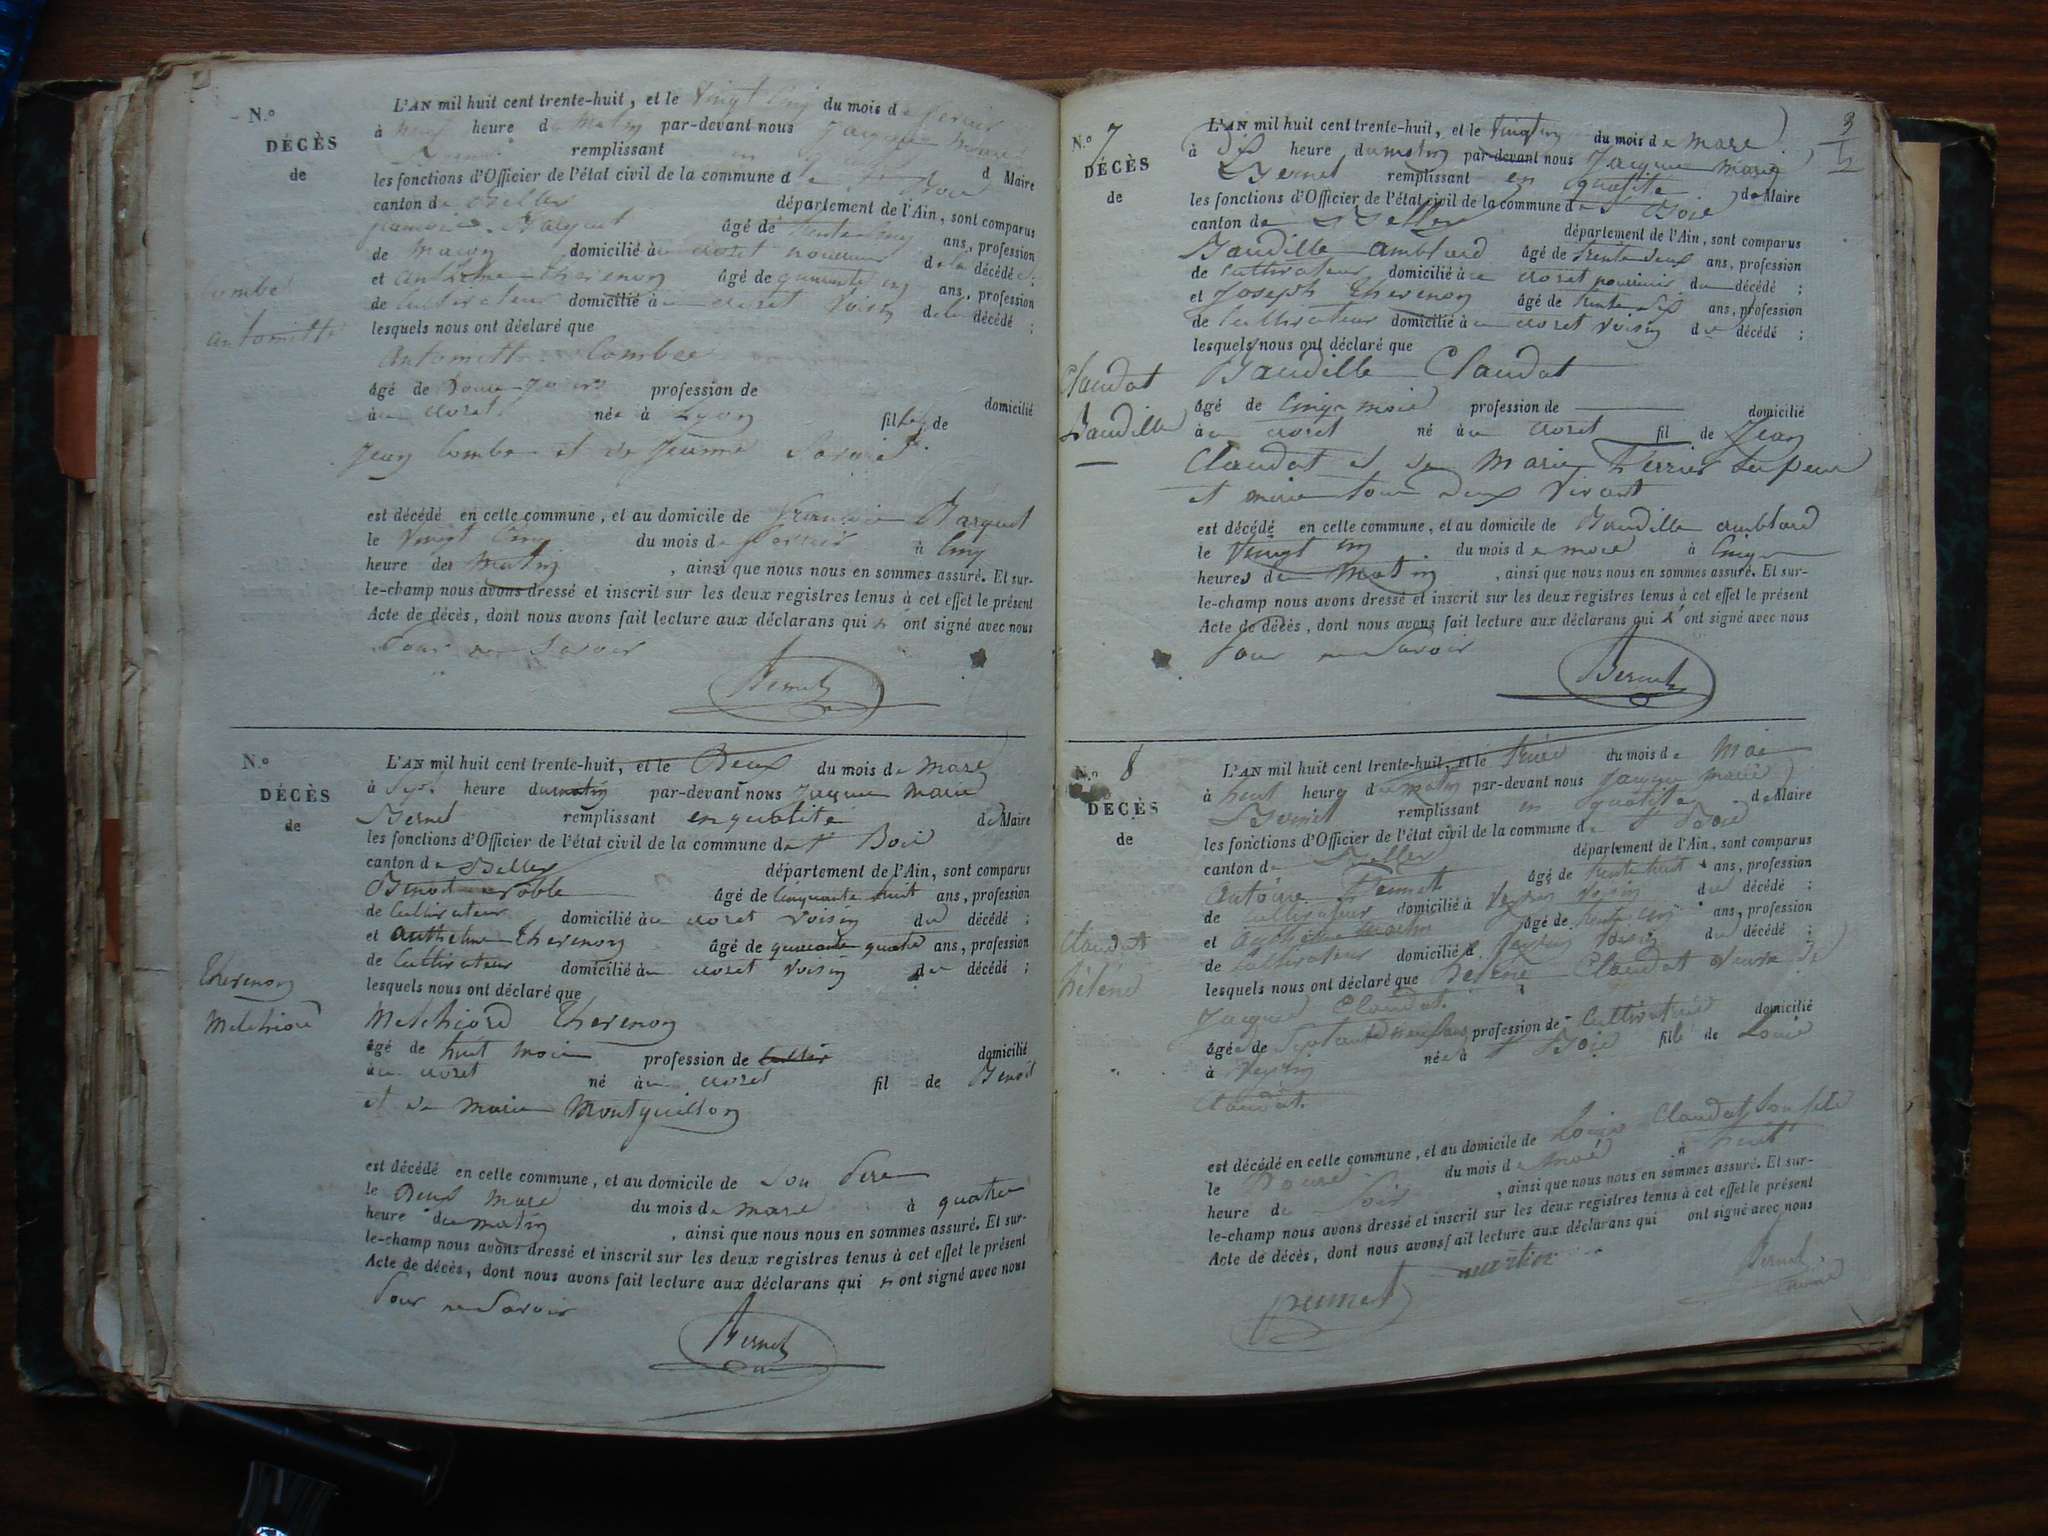 N.o
DÉCÈS
de
combe
antomette
L'AN mil huit cent trente-huit, et le Vingt Cinq du mois de fevrier
à neuf heure du Matin par-devant nous Jacques Marie
Bernet remplissant en qualité d Maire
les fonctions d'Officier de l'état civil de la commune de St Boie
canton de Belley département de l'Ain, sont comparus
âgé de trente cinq ans, profession
de Maçon domicilié au crozet nourricier de la décédée ;
et Anthelme Thevenon âgé de quarante ans, profession
de Cultivateur domicilié au crozet Voisin de la décédé ;
lesquels nous ont déclaré que
Antomette Combe
âgé de Douze Jours profession de domicilié
au crozet née à Lyon fille de
Jean Combe et de Jeanne
est décédé en cette commune, et au domicile de
le Vingt Cinq du mois de fevrier à Cinq
heure de Matin, ainsi que nous nous en sommes assuré. Et sur-
le-champ nous avons dressé et inscrit sur les deux registres tenus à cet effet le présent
Acte de décès, dont nous avons fait lecture aux déclarans qui n ont signé avec nous
Pour ne Savoir
Bernet
N.o
DÉCÈS
de
Thevenon
Melchiord
L'AN mil huit cent trente-huit, et le Deux du mois de Mars
à Sept heure du matin par-devant nous Jacque Marie
Bernet remplissant en qualité de Maire
les fonctions d'Officier de l'état civil de la commune de St Boie
canton de Belley département de l'Ain, sont comparus
Benoit âgé de Cinquante huit ans, profession
de Cultivateur domicilié au crozet Voisin du décédé ;
et Anthelme Thevenon âgé de quarante quatre ans, profession
de Cultivateur domicilié au crozet Voisin du décédé ;
lesquels nous ont déclaré que
Melchiord Thevenon
âgé de huit mois profession de domicilié
au crozet né au crozet fil de Benoit
et de Marie Montquillon
est décédé en cette commune, et au domicile de Son Pere
le Deux Mars du mois de Mars à quatre
heure du matin, ainsi que nous nous en sommes assuré. Et sur-
le-champ nous avons dressé et inscrit sur les deux registres tenus à cet effet le présent
Acte de décès, dont nous avons fait lecture aux déclarans qui n ont signé avec nous
Pour ne Savoir
Bernet
3
12
N.o 7
DÉCÈS
de
Claudat
Baudille
L'AN mil huit cent trente-huit, et le Vingt un du mois de Mars
à Six heure du matin par-devant nous Jacque Marie
Bernet remplissant en qualité de Maire
les fonctions d'Officier de l'état civil de la commune de St Boie
canton de Belley département de l'Ain, sont comparus
Baudille Amblard âgé de trente deux ans, profession
de Cultivateur domicilié au crozet nourricier du décédé ;
et Joseph Thevenon âgé de trente six ans, profession
de Cultivateur domicilié au crozet Voisin du décédé ;
lesquels nous ont déclaré que
Baudille Claudat
âgé de Cinq mois profession de domicilié
au crozet né au crozet fil de Jean
Claudat et de Marie Perrier Ses pere
et mere tous deux Vivant
est décédé en cette commune, et au domicile de Baudille Amblard
le Vingt un du mois de mars à Cinq
heures de Matin, ainsi que nous nous en sommes assuré. Et sur-
le-champ nous avons dressé et inscrit sur les deux registres tenus à cet effet le présent
Acte de décès, dont nous avons fait lecture aux déclarans qui n ont signé avec nous
Pour ne Savoir
Bernet
N.o 8
DÉCÈS
de
Claudat
hélène
L'AN mil huit cent trente-huit, et le treize du mois de Mai
à heure du matin par-devant nous Jacque Marie
Bernet remplissant en qualité de Maire
les fonctions d'Officier de l'état civil de la commune de St Boie
canton de Belley département de l'Ain, sont comparus
Antoine Peinnet âgé de trente huit ans, profession
de Cultivateur domicilié à Veyrin Voisin du décédé ;
et Anthelme Martin âgé de trente cinq ans, profession
de Cultivateur domicilié à Veyrin Voisin du décédé ;
lesquels nous ont déclaré que helene Claudat Veuve de
Jacque Claudat
âgée de Septante neuf ans profession de Cultivatrice domicilié
à Veyrin née à St Boie fille de Louis
Claudat.
est décédé en cette commune, et au domicile de Louis Claudat Son fils
le Douze du mois de Mai à huit
heure de Soir, ainsi que nous nous en sommes assuré. Et sur-
le-champ nous avons dressé et inscrit sur les deux registres tenus à cet effet le présent
Acte de décès, dont nous avons fait lecture aux déclarans qui ont signé avec nous
Bernet